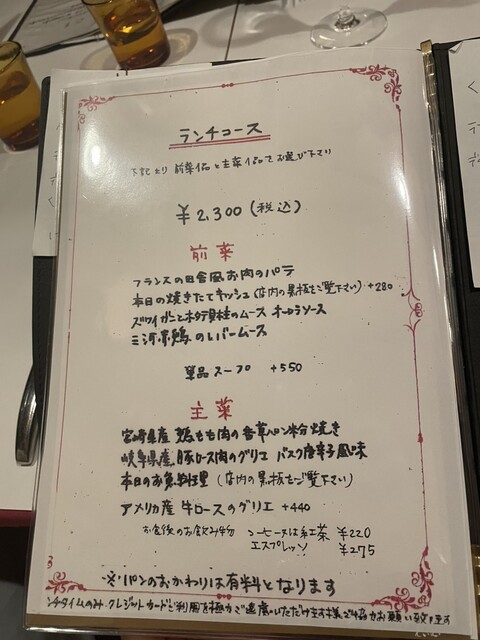 ランチコース
下記より 前菜1品と主菜1品でお選び下さい
¥2,300(税込)
前菜
フランスの田舎風お肉のパテ
本日の焼きたてキッシュ(店内の黒板をご覧下さい)+280
ズワイガニとホタテ貝柱のムース オーロラソース
三河赤鶏のレバームース
単品スープ +550
主菜
宮崎県産 鶏もも肉の香草パン粉焼き
岐阜県産 豚ロース肉のグリエ バスク唐辛子風味
本日のお魚料理(店内の黒板をご覧下さい)
アメリカ産 牛ロースのグリエ +440
お食後のお飲み物 コーヒー又は紅茶 ¥220
エスプレッソ ¥275
※パンのおかわりは有料となります
ンチタイムのみ、クレジットカードご利用を極力ご遠慮いただけます様ご協力お願い致します